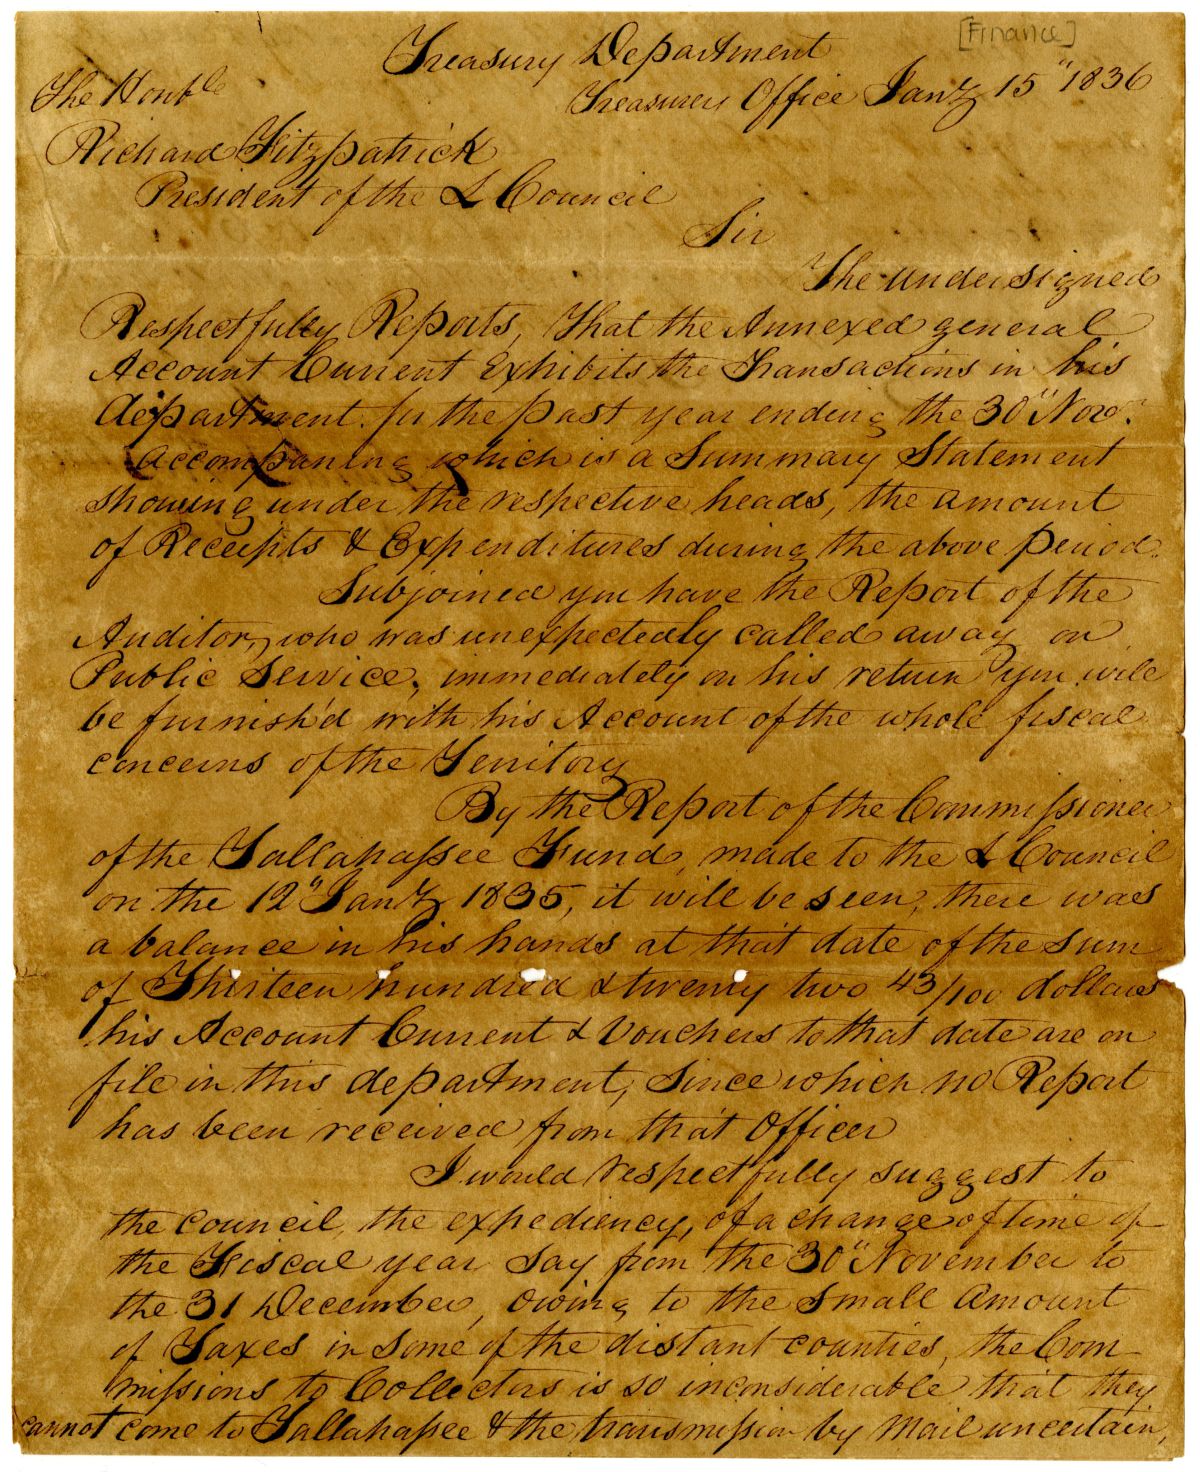 [Finance]
Treasury Department
Treasurers Office Jany 15" 1836
The Honble
Richard Fitzpatrick
President of the L Council
Sir
The undersigned
Respectfully Reports, That the Annexed general
Account Current Exhibits the Transactions in his
department. for the past year ending the 30" Novr.
Accompaning which is a Summary Statement
showing under the respective heads, the amount
of Receipts & Expenditures during the above period.
Subjoined you have the Report of the
Auditor, who was unexpectedly called away on
Public Service, immediately on his return you will
be furnish'd with his Account of the whole fiscal
concerns of the Territory
By the Report of the Commissioner
of the Tallahassee Fund, made to the L Council
on the 12" Jany 1835, it will be seen, there was
a balance in his hands at that date of the sum
of Thirteen hundred & twenty two 43/100 dollars
his Account Current & Vouchers to that date are on
file in this department, since which no Report
has been received from that Officer
I would respectfully suggest to
the council, the expediency, of a change of time of
the Fiscal year say from the 30" November to
the 31 December, owing to the small amount
of Taxes in some of the distant counties, the Com-
missions to Collectors is so inconsiderable that they
cannot come to Tallahassee & the transmission by Mail uncertain,